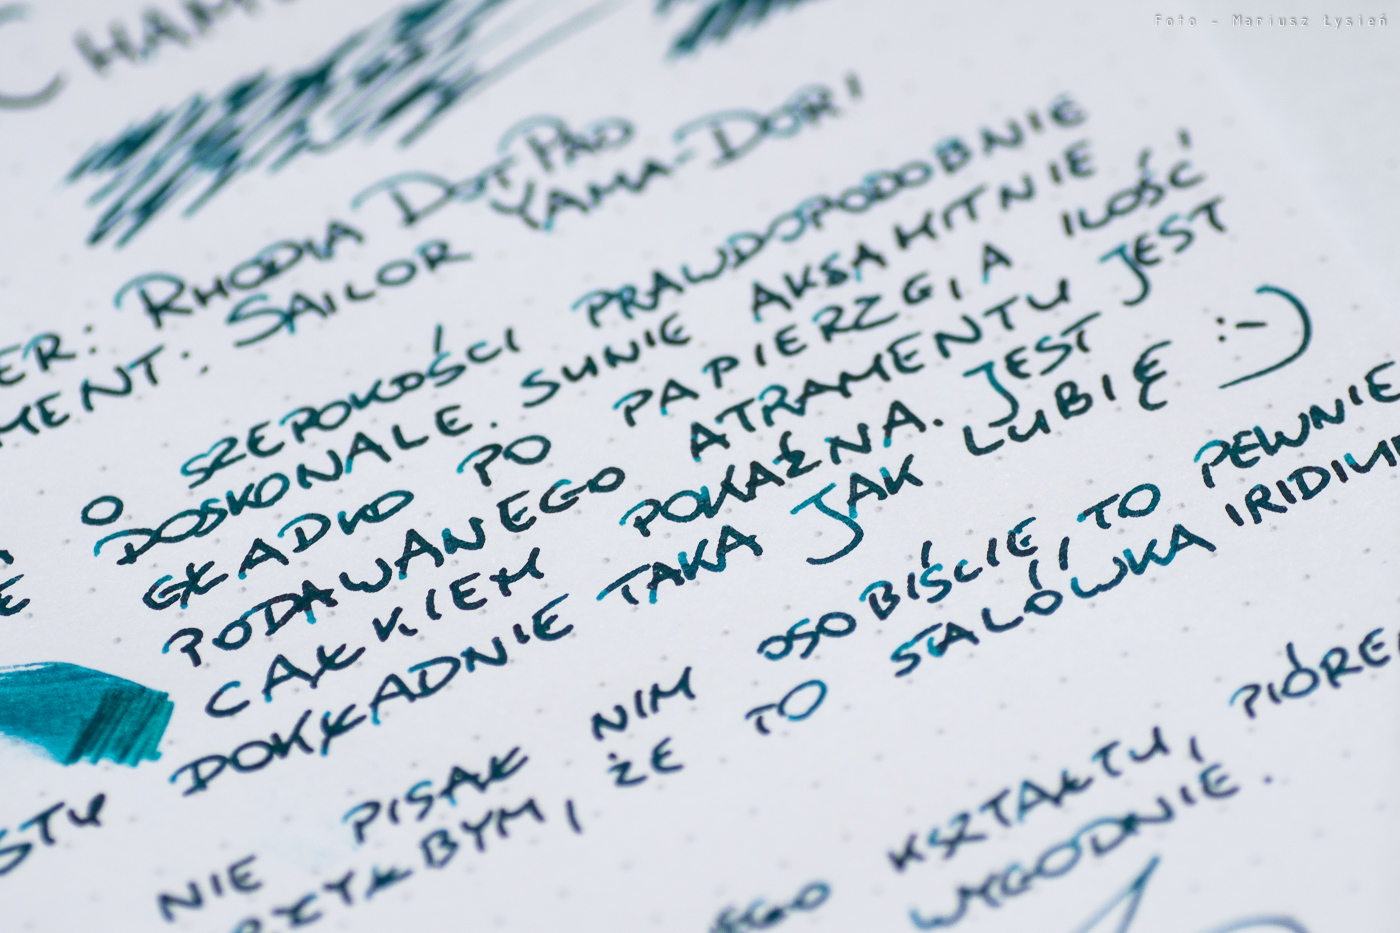 Foto - Mariusz Łysień
RHODIA DOTPAD
SAILOR YAMA-DORI
O SZEROKOŚCI PRAWDOPODOBNIE
DOSKONALE. SUNIE AKSAMITNIE
GŁADKO PO PAPIERZE, A ILOŚĆ
PODAWANEGO ATRAMENTU JEST
CAŁKIEM POKAŹNA. JEST
DOKŁADNIE TAKA JAK LUBIĘ :-)
NIE PISAŁ NIM OSOBIŚCIE, TO PEWNIE
ŻE TO STALÓWKA
KSZTAŁTU,
WYGODNIE.